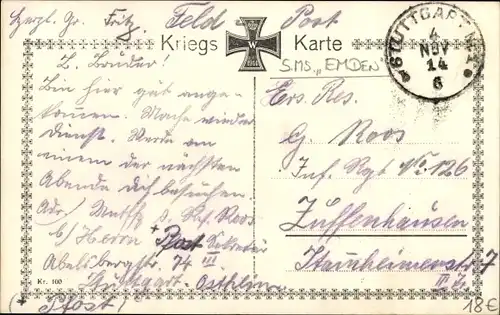 Herzl. Gr. Fritz.
Feld Post
Kriegs Karte
W
1914
S.M.S. „EMDEN"
STUTTGART No. 1
4
NOV
14
6
L. Bruder!
Bin hier gut ange-
kommen. Mache wieder
Dienst. Werde an
einem der nächsten
Abende dich besuchen.
Adr. Roos
b/ Herrn + Post Sekretär
Abelsbergstr. 74 III
Stuttgart-Ostheim
(+ Post)
Ers. Res.
G. Roos
Inf. Rgt No. 126
Zuffenhausen
Stammheimerstr. 7
Kr. 100
18€